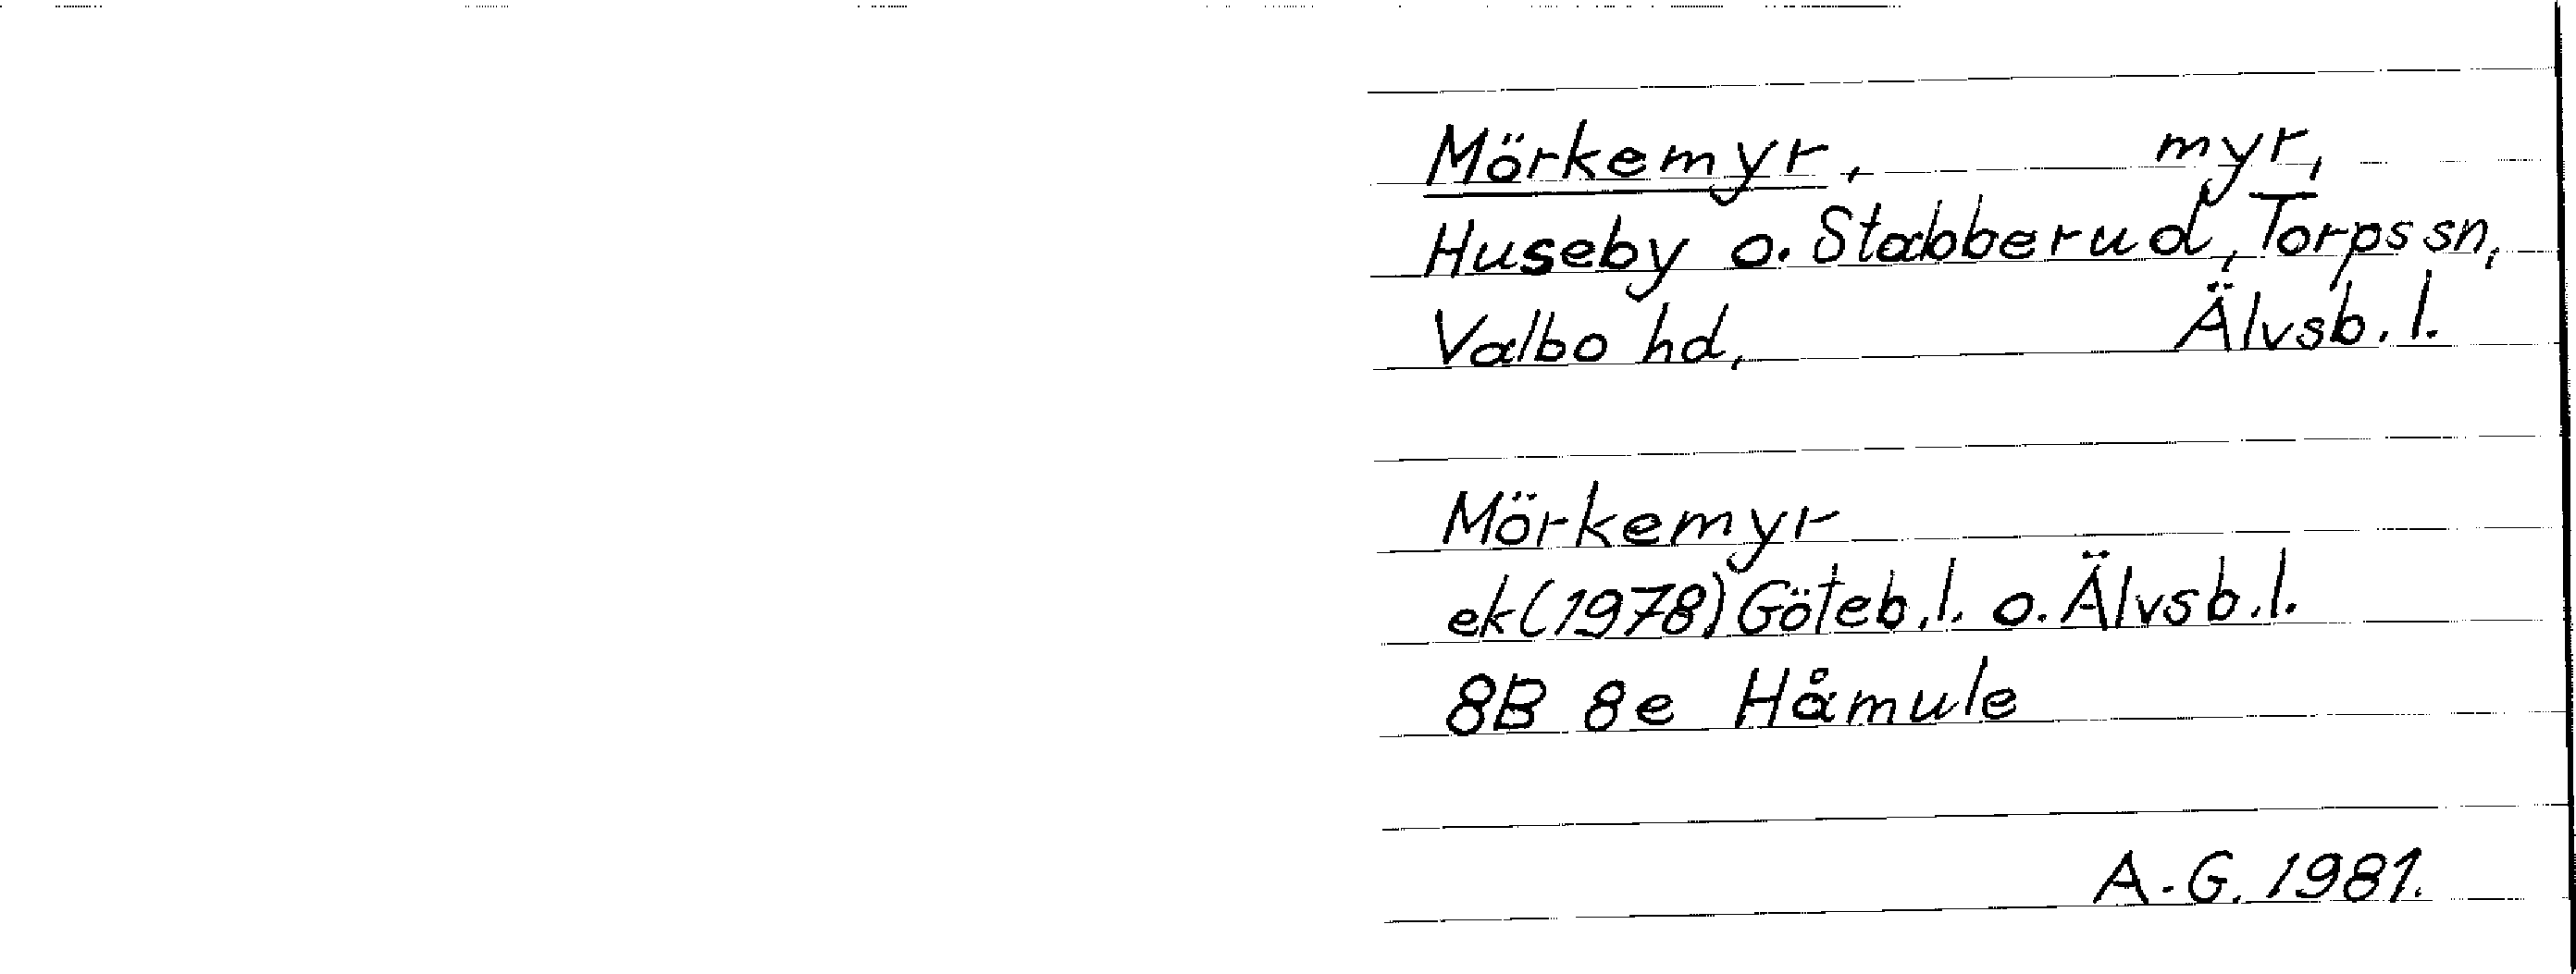 Mörkemyr, myr,
Huseby o. Stabberud, Torps sn,
Valbo hd, Älvsb. l.
Mörkemyr
ek (1978) Göteb. l. o. Älvsb. l.
8B 8e Håmule
A.-G. 1981.